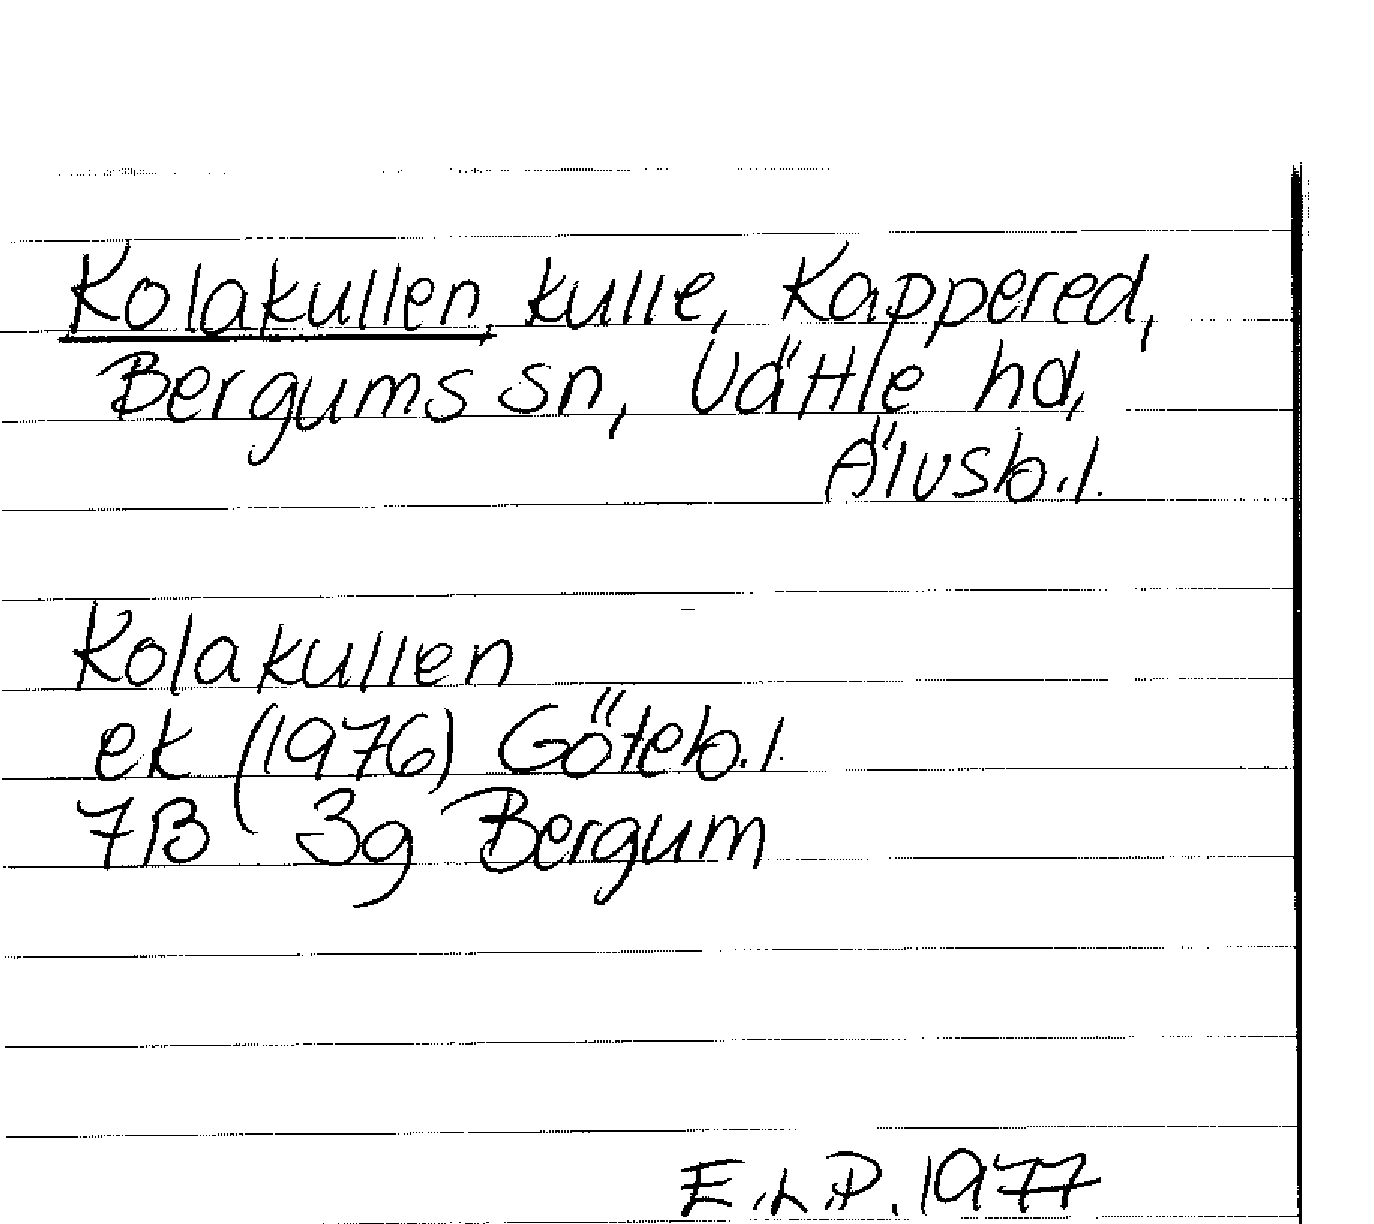 Kolakullen, kulle, Kappered,
Bergums sn, Vättle hd,
Älvsb. l.
Kolakullen
ek (1976) Göteb. l.
7B 3g Bergum
E.L.P. 1977